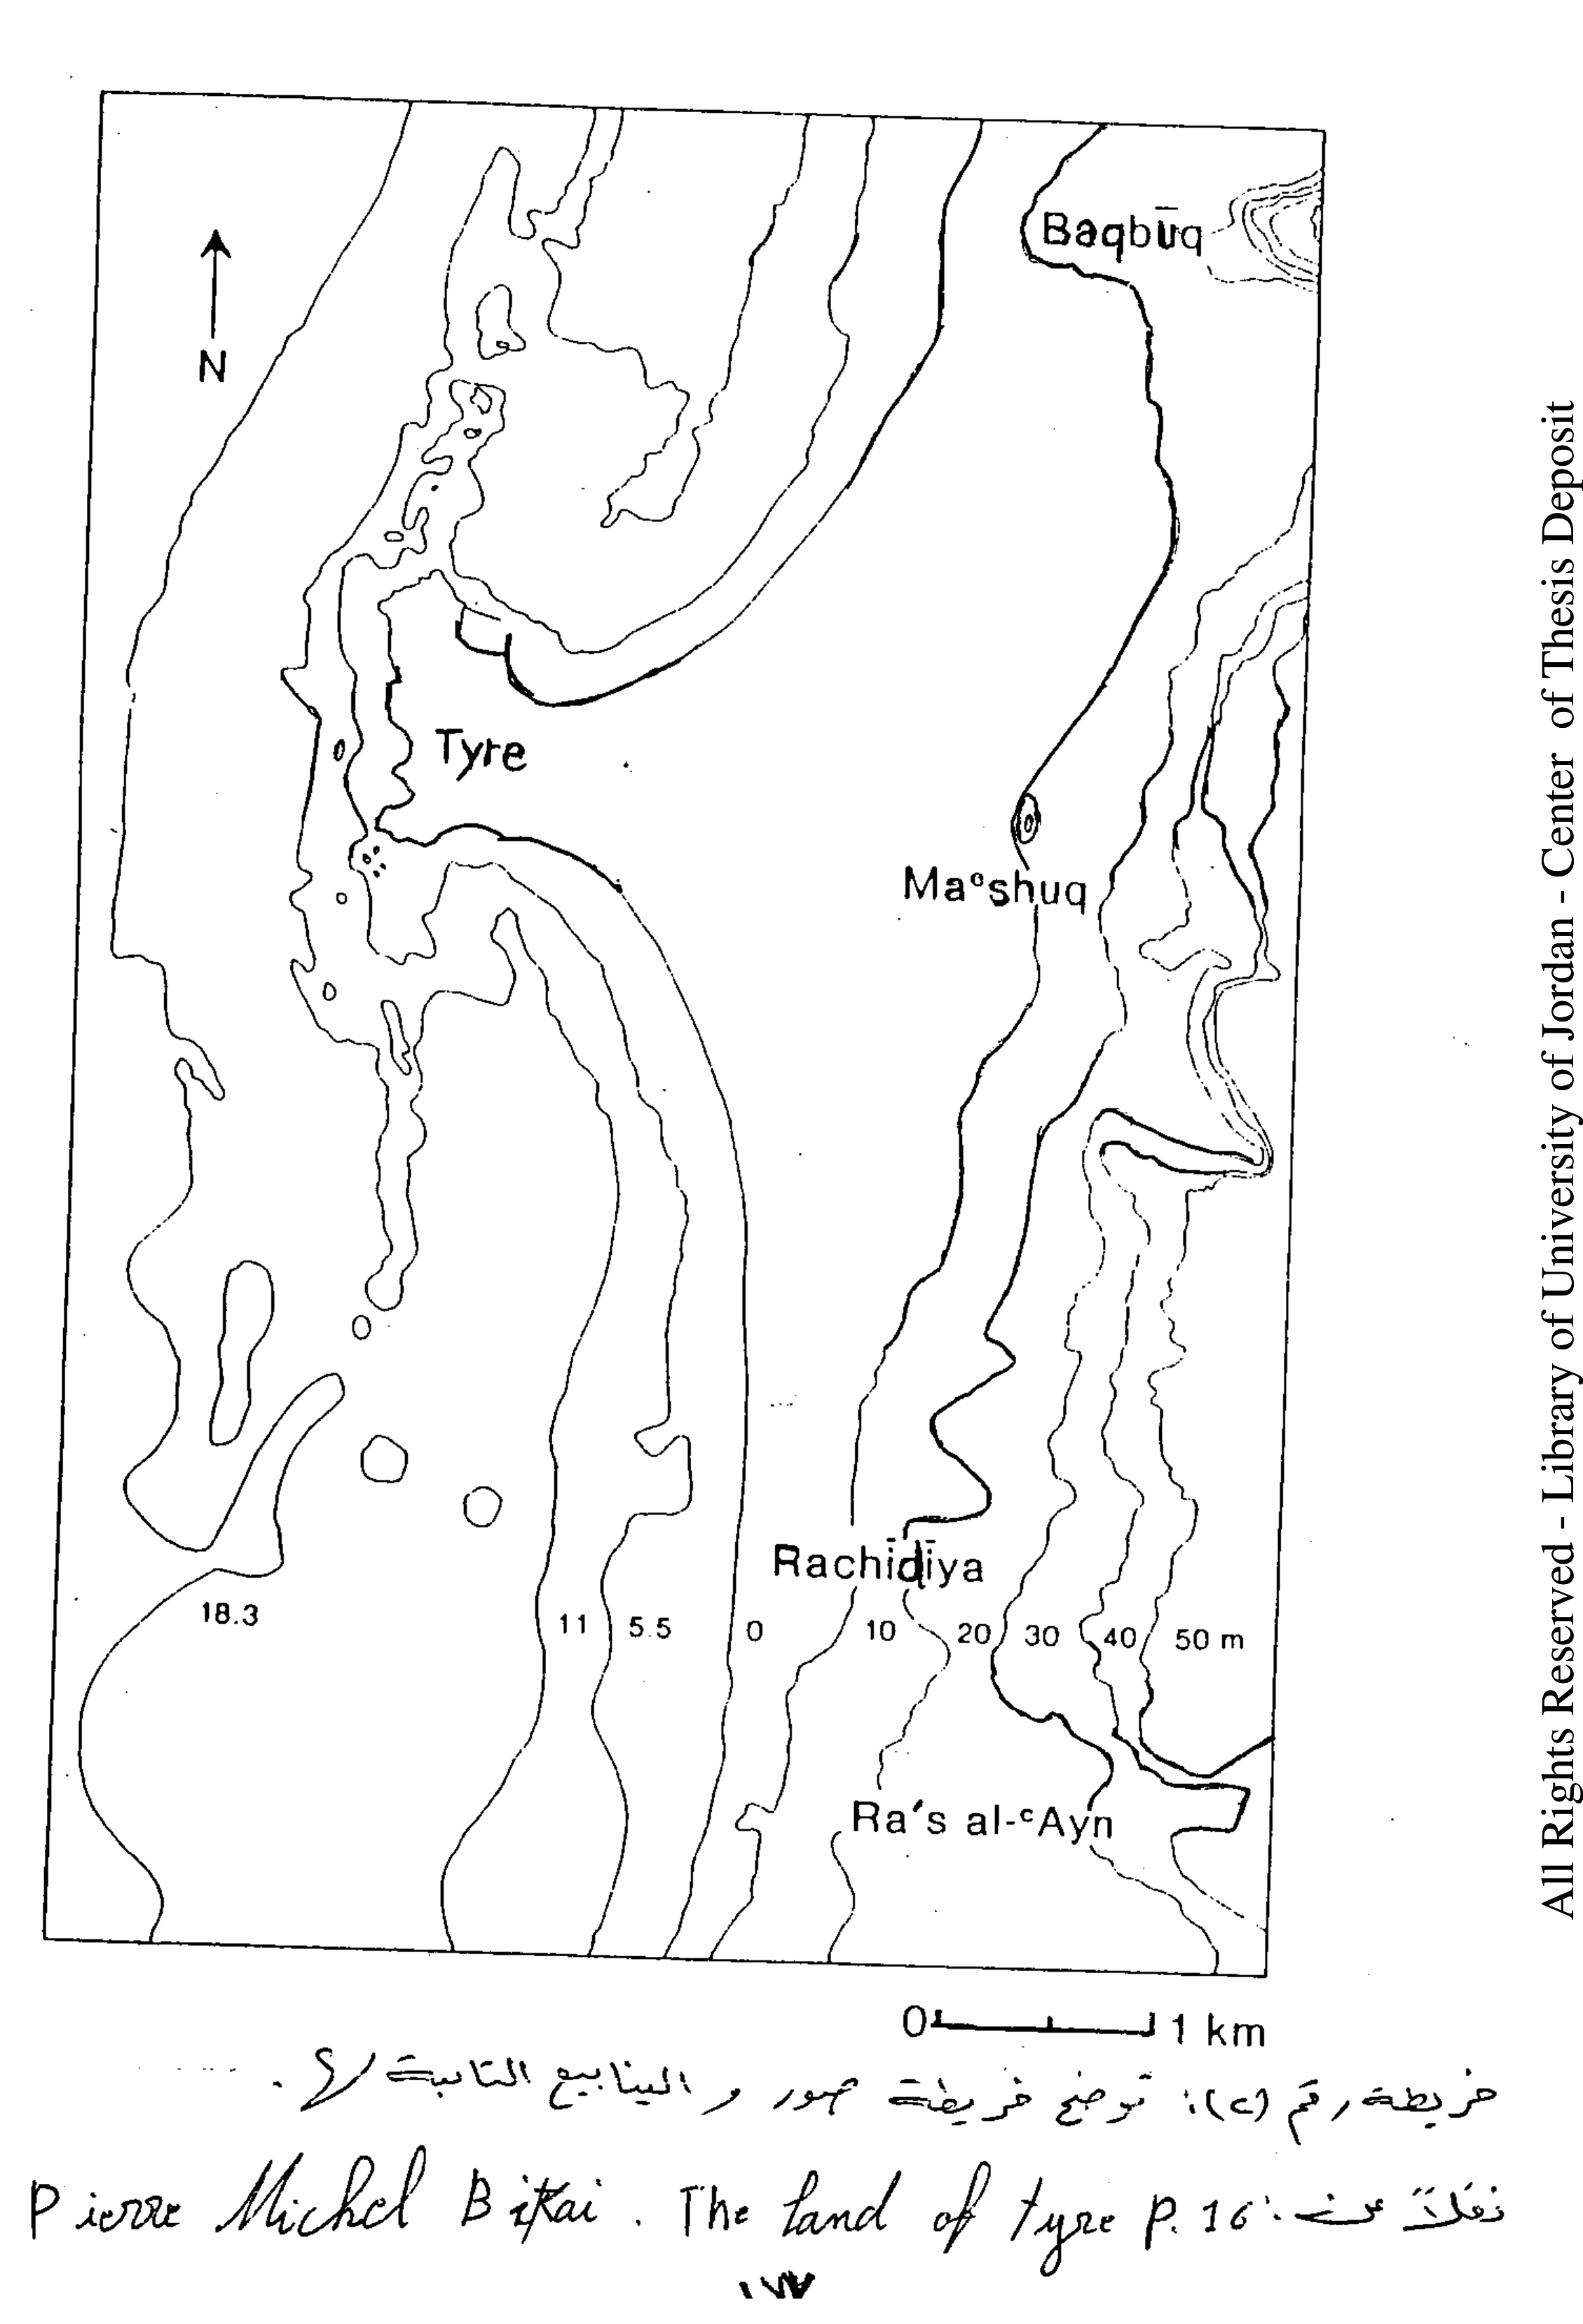 Baqbūq
N
Tyre
Ma°shuq
Rachīdīya
18.3 11 5.5 0 10 20 30 40 50 m
Ra's al-ᶜAyn
0 1 km
خريطة رقم (٢): توضح خريطة صور و الينابيع التابعة لها.
نقلاً عن: Pierre Michel Bikai. The land of tyre p. 16
١٧٧
All Rights Reserved - Library of University of Jordan - Center of Thesis Deposit